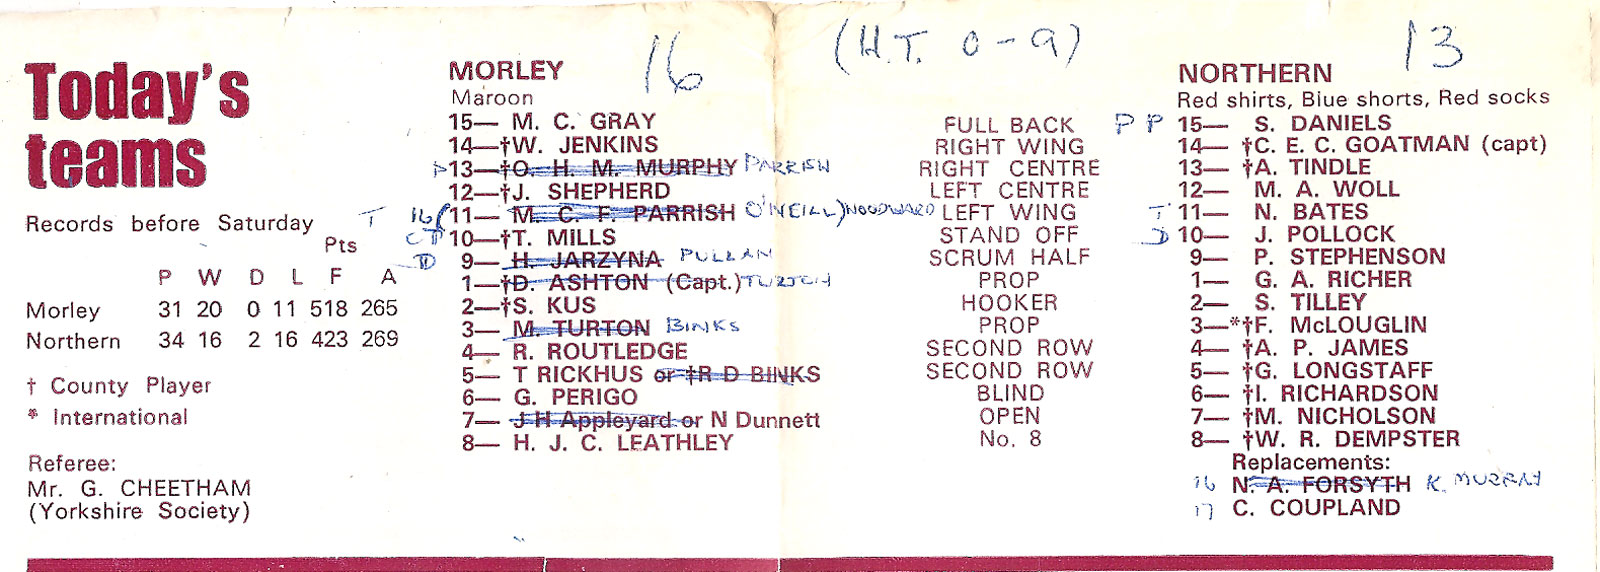 Today's
teams
Records before Saturday
Pts
P W D L F A
Morley 31 20 0 11 518 265
Northern 34 16 2 16 423 269
† County Player
* International
Referee:
Mr. G. CHEETHAM
(Yorkshire Society)
MORLEY 16
Maroon
15— M. C. GRAY
14—†W. JENKINS
P 13—†O. H. M. MURPHY PARRISH
12—†J. SHEPHERD
T 16 (11— M. C. F. PARRISH O'NEILL) WOODWARD
CT 10—†T. MILLS
D 9— H. JARZYNA PULLAN
1—†D. ASHTON (Capt.) TURTON
2—†S. KUS
3— M. TURTON BINKS
4— R. ROUTLEDGE
5— T RICKHUS or †R D BINKS
6— G. PERIGO
7— J H Appleyard or N Dunnett
8— H. J. C. LEATHLEY
(H.T. 0-9)
FULL BACK
RIGHT WING
RIGHT CENTRE
LEFT CENTRE
LEFT WING
STAND OFF
SCRUM HALF
PROP
HOOKER
PROP
SECOND ROW
SECOND ROW
BLIND
OPEN
No. 8
NORTHERN 13
Red shirts, Blue shorts, Red socks
P P 15— S. DANIELS
14— †C. E. C. GOATMAN (capt)
13— †A. TINDLE
12— M. A. WOLL
T 11— N. BATES
D 10— J. POLLOCK
9— P. STEPHENSON
1— G. A. RICHER
2— S. TILLEY
3—*†F. McLOUGLIN
4— †A. P. JAMES
5— †G. LONGSTAFF
6— †I. RICHARDSON
7— †M. NICHOLSON
8— †W. R. DEMPSTER
Replacements:
16 N. A. FORSYTH K. MURRAY
17 C. COUPLAND